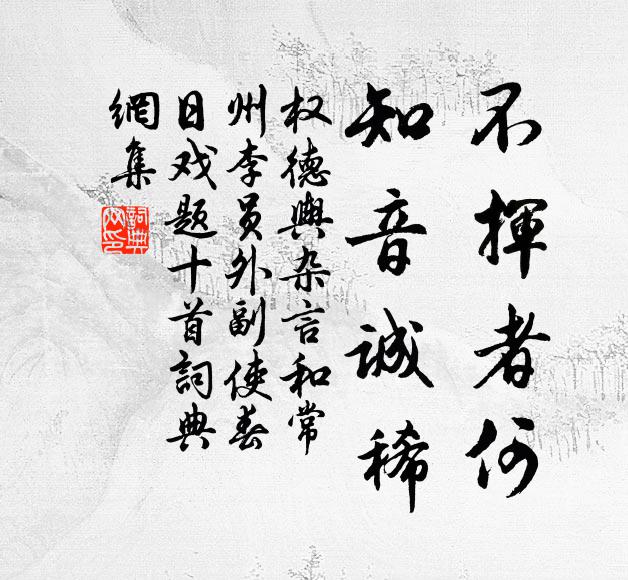 不揮者何
知音誠稀
权德輿杂言和常
州李员外副使春
日戏题十首詞典
網集
詞典
网印